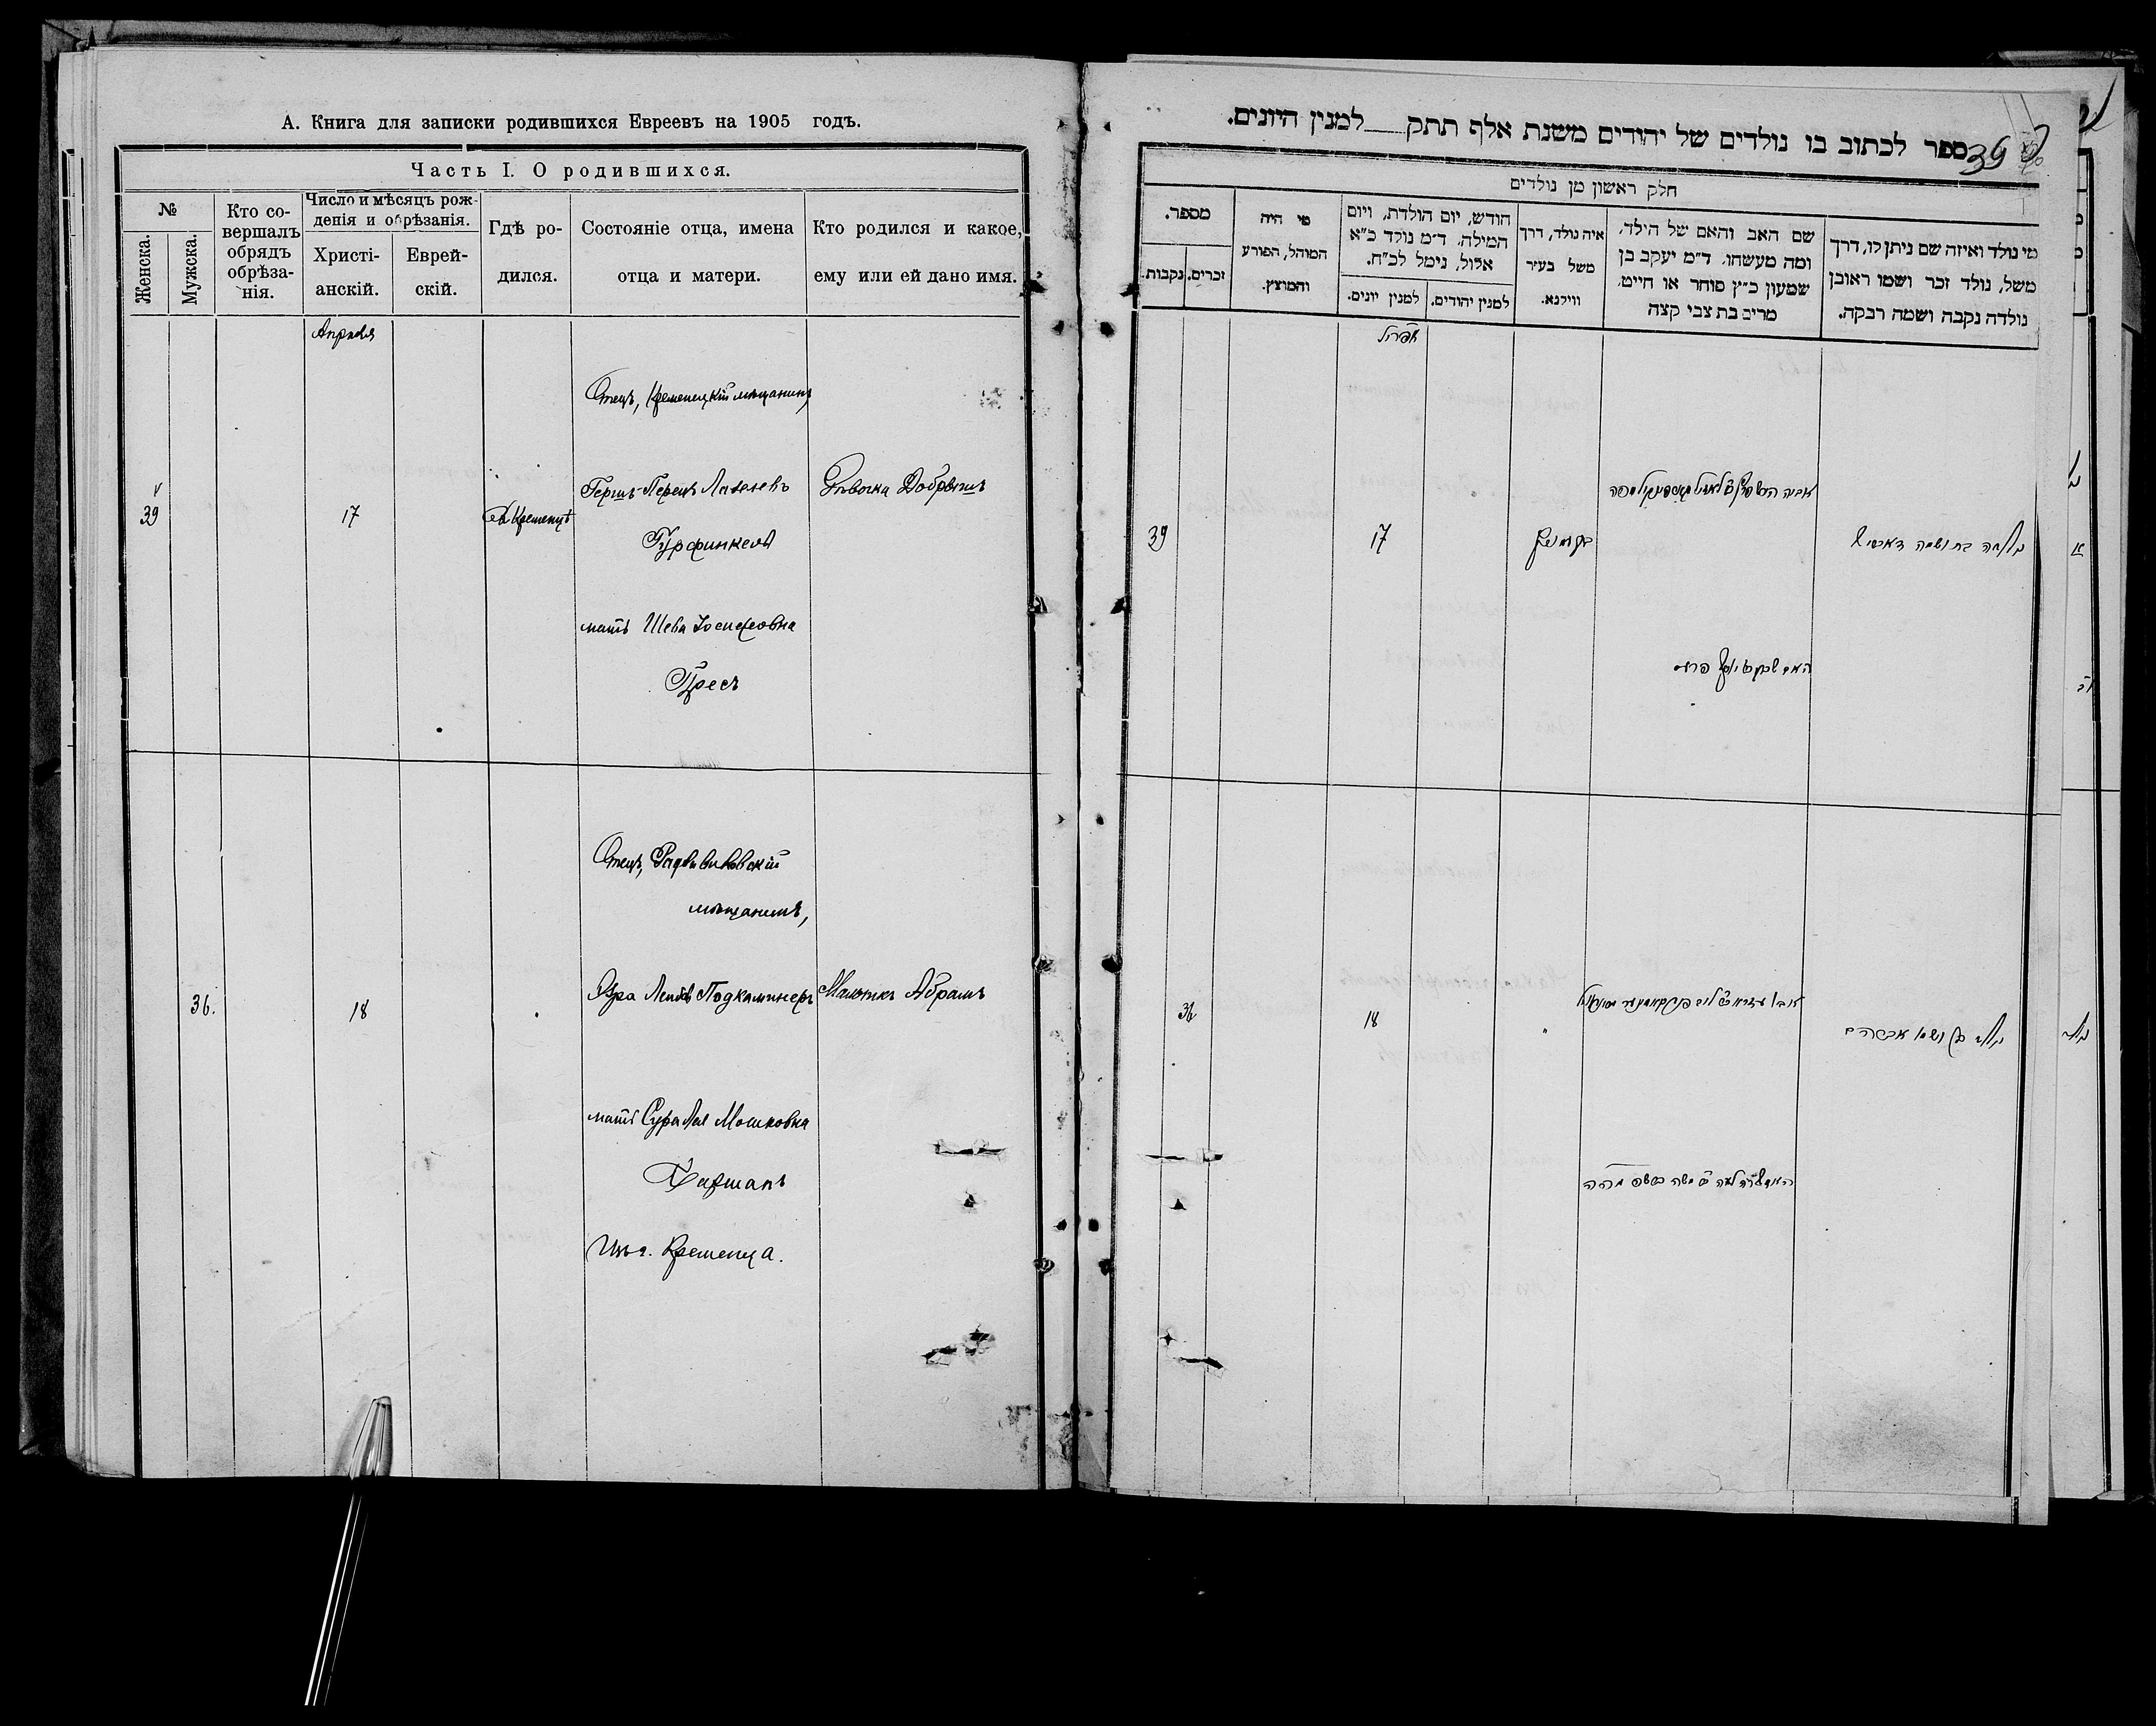 А. Книга для записки родившихся Евреевъ на 1905 годъ.
Часть I. О родившихся.
№
Женска.
Мужска.
Кто со-
вершалъ
обрядъ
обрѣза-
нія.
Число и мѣсяцъ рож-
денія и обрѣзанія.
Христі-
анскій.
Еврей-
скій.
Гдѣ ро-
дился.
Состояніе отца, имена
отца и матери.
Кто родился и какое,
ему или ей дано имя.
Апрѣля
Отецъ, Кременецкій мѣщанинъ,
39
17
Кременцѣ
Гершъ-Перецъ
Гурфинкель
Дѣвочка Добрышъ
мать Шева Іосифовна
Пресъ
Отецъ, Радзивиловскій
мѣщанинъ,
36.
18
Лейбовъ Подкаминеръ
Мальчикъ Абрамъ
мать Сура Лея Мошковна
Изъ г. Кременца.
39 ספר לכתוב בו נולדים של יהודים משנת אלף תתק למנין היונים.
חלק ראשון מן נולדים
מי נולד ואיזה שם ניתן לו, דרך
משל, נולד זכר ושמו ראובן
נולדה נקבה ושמה רבקה.
שם האב והאם של הילד,
ומה מעשהו. ד״מ יעקב בן
שמעון כ״ץ סוחר או חייט,
מרים בת צבי קצה
איה נולד, דרך
משל בעיר
ווילנא.
חודש, יום הולדת, ויום
המילה. ד״מ נולד כ״א
אלול, נימל לכ״ח.
למנין יהודים.
למנין יונים.
מי היה
המוהל, הפורע
והמוצץ.
מספר.
זכרים.
נקבות.
אפריל
39
17
נולדה בת ושמה
36
18
נולד בן ושמו אברהם